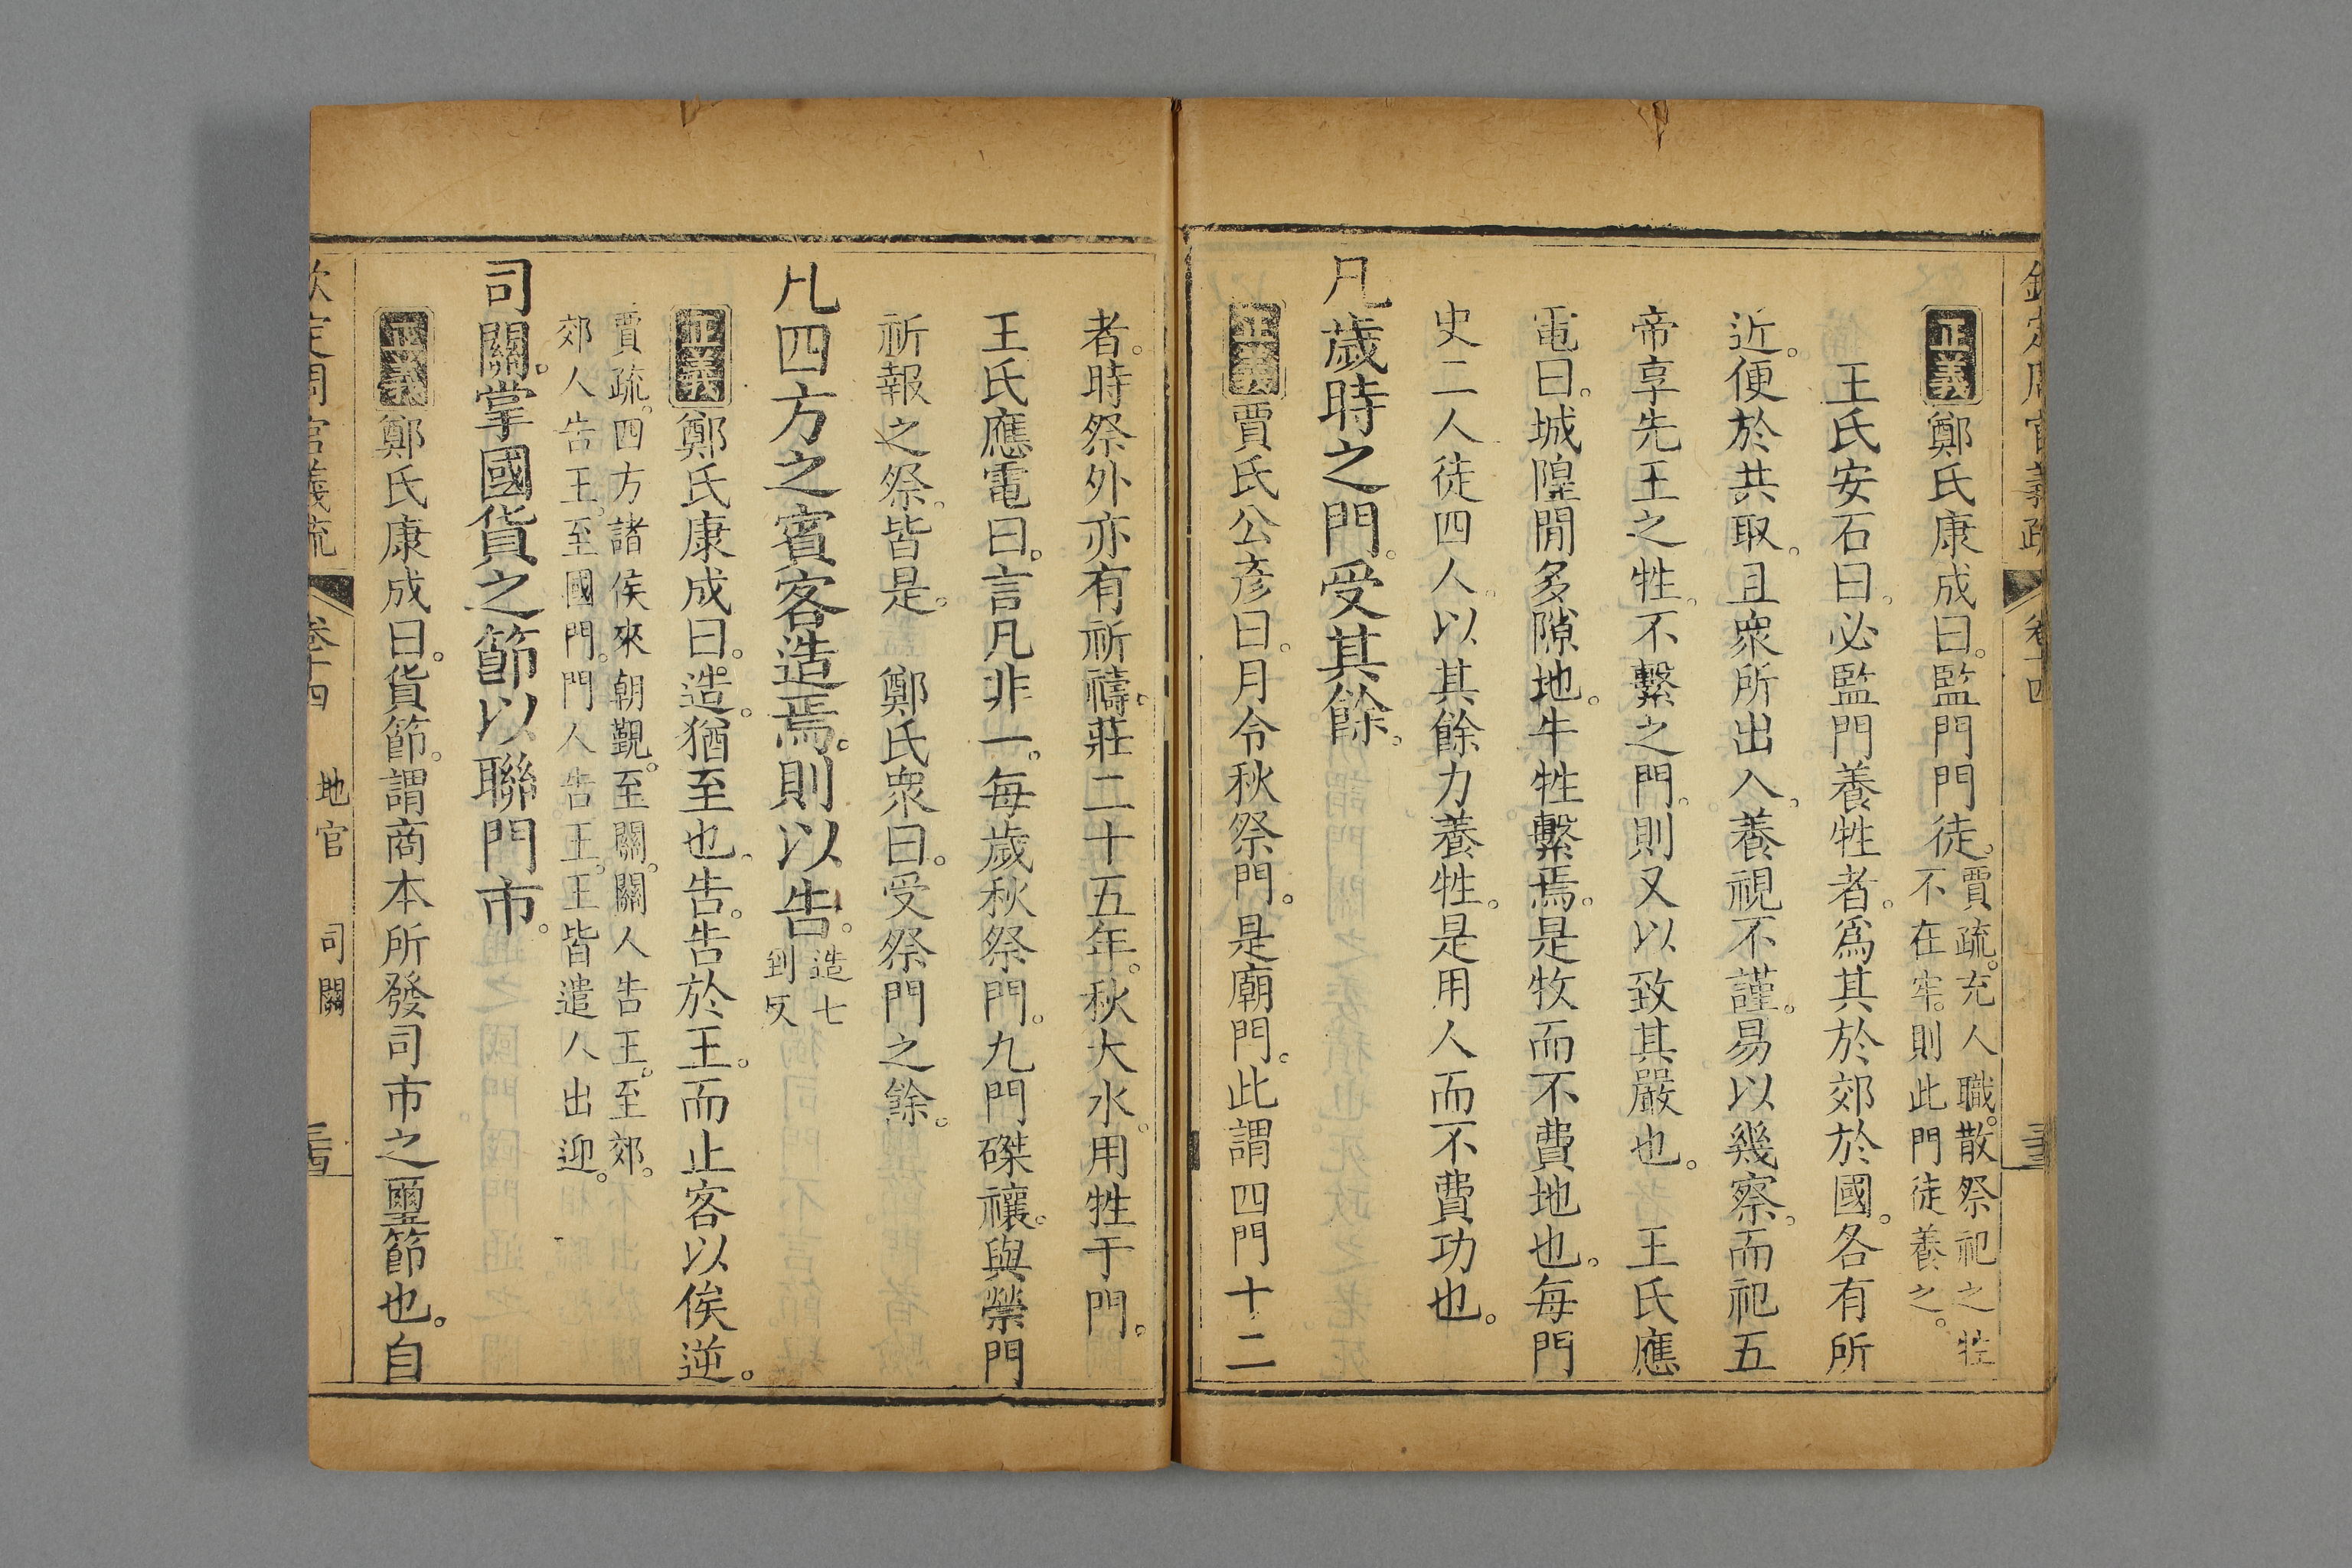 正義鄭氏康成曰。監門門徒。賈疏。充人職。散祭祀之牲
不在牢。則此門徒養之。
王氏安石曰。必監門養牲者。爲其於郊於國。各有所
近。便於共取。且衆所出入。養視不謹。易以幾察。而祀五
帝享先王之牲。不繫之門。則又以致其嚴也。 王氏應
電曰。城隍閒多隙地。牛牲繫焉。是牧而不費地也。每門
史二人徒四人。以其餘力養牲。是用人而不費功也。
凡歲時之門。受其餘。
正義賈氏公彥曰。月令秋祭門。是廟門。此謂四門十二
者。時祭外亦有祈禱。莊二十五年。秋大水。用牲于門。
王氏應電曰。言凡非一。每歲秋祭門。九門磔禳。與禜門
祈報之祭。皆是。 鄭氏衆曰。受祭門之餘。
凡四方之賓客造焉。則以告。造七
到反
正義鄭氏康成曰。造。猶至也。告。告於王。而止客以俟逆。
賈疏。四方諸侯來朝覲。至關。關人告王。至郊。
郊人告王。至國門。門人告王。王皆遣人出迎。
司關。掌國貨之節。以聯門市。
正義鄭氏康成曰。貨節。謂商本所發司市之璽節也。自
欽定周官義疏 卷十四 地官 司關